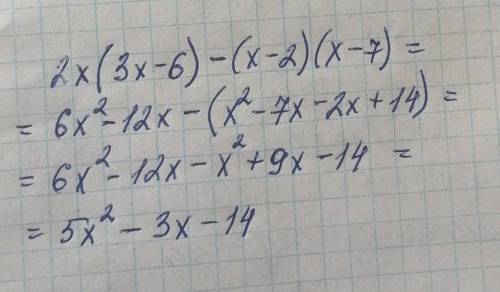 2x(3x-6)-(x-2)(x-7)=
= 6x²-12x-(x²-7x-2x+14)=
= 6x²-12x-x²+9x-14 =
= 5x²-3x-14